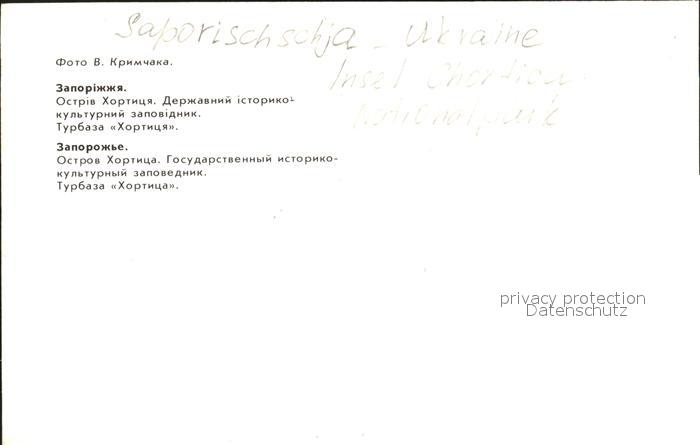 Saporischschja - Ukraine
Insel Chortica
Nationalpark
Фото В. Кримчака.
Запоріжжя.
Острів Хортиця. Державний історико-
культурний заповідник.
Турбаза «Хортиця».
Запорожье.
Остров Хортица. Государственный историко-
культурный заповедник.
Турбаза «Хортица».
privacy protection
Datenschutz